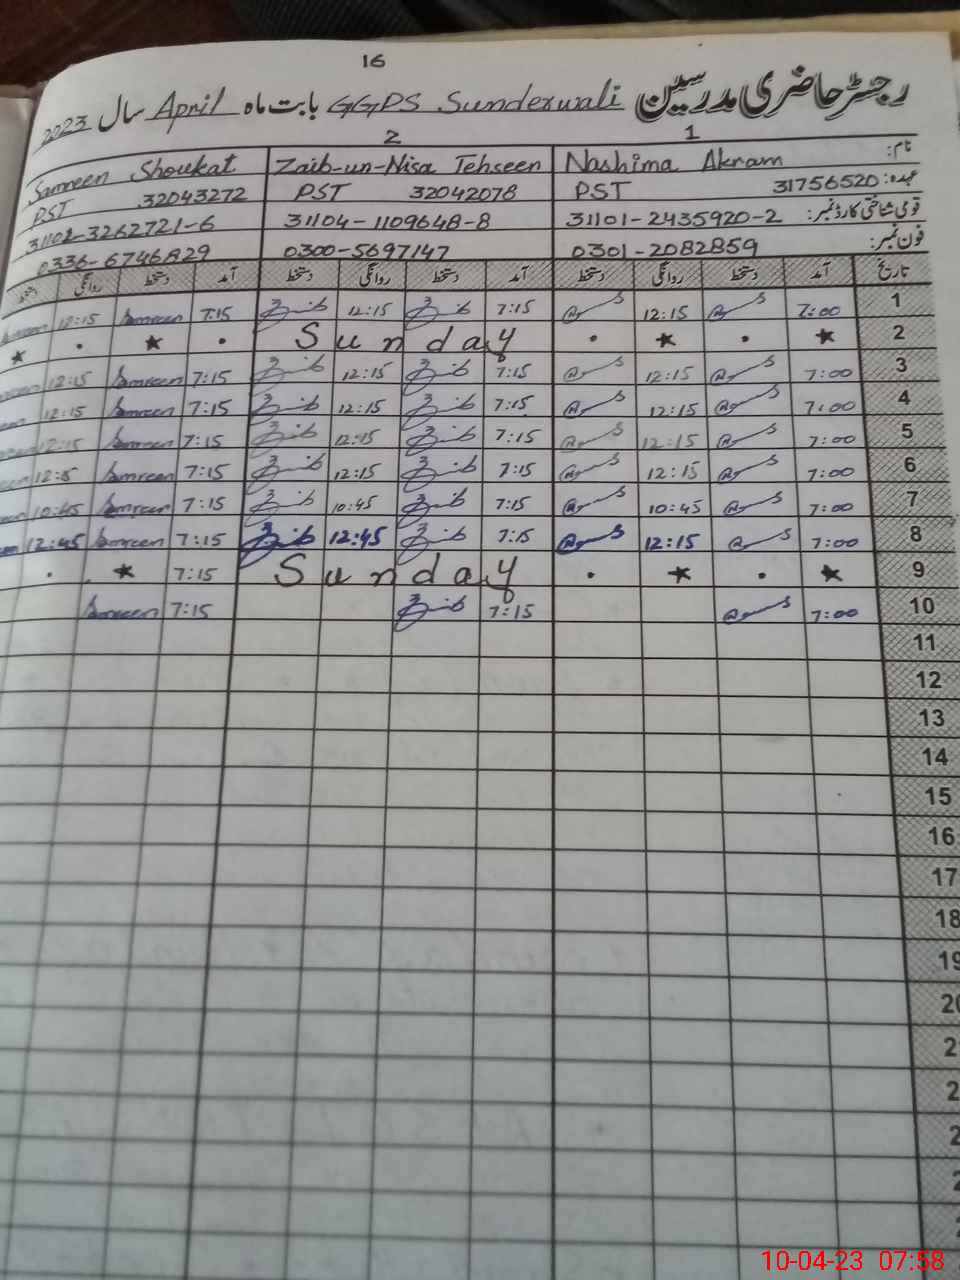 16
رجسٹر حاضری مدرسین GGPS Sunderwali بابت ماہ April سال 2023
1 2
نام: Nashima Akram Zaib-un-Nisa Tehseen Samreen Shoukat
عہدہ: 31756520 PST 32042078 PST 32043272 PST
قومی شناختی کارڈ نمبر: 31101-2435920-2 31104-1109648-8 31102-3262721-6
فون نمبر: 0301-2082859 0300-5697147 0336-6746829
تاریخ آمد دستخط روانگی دستخط آمد دستخط روانگی دستخط آمد دستخط روانگی
1 7:00 12:15 7:15 12:15 7:15 Samreen 12:15
2 Sunday
3 7:00 12:15 7:15 12:15 7:15 Samreen 12:15
4 7:00 12:15 7:15 12:15 7:15 Samreen 12:15
5 7:00 12:15 7:15 12:15 7:15 Samreen 12:15
6 7:00 12:15 7:15 12:15 7:15 Samreen
7 7:00 10:45 7:15 10:45 7:15 Samreen 10:45
8 7:00 12:15 7:15 12:45 7:15 Samreen 12:45
9 Sunday 7:15
10 7:00 7:15 7:15 Samreen
11
12
13
14
15
16
17
18
19
10-04-23 07:58